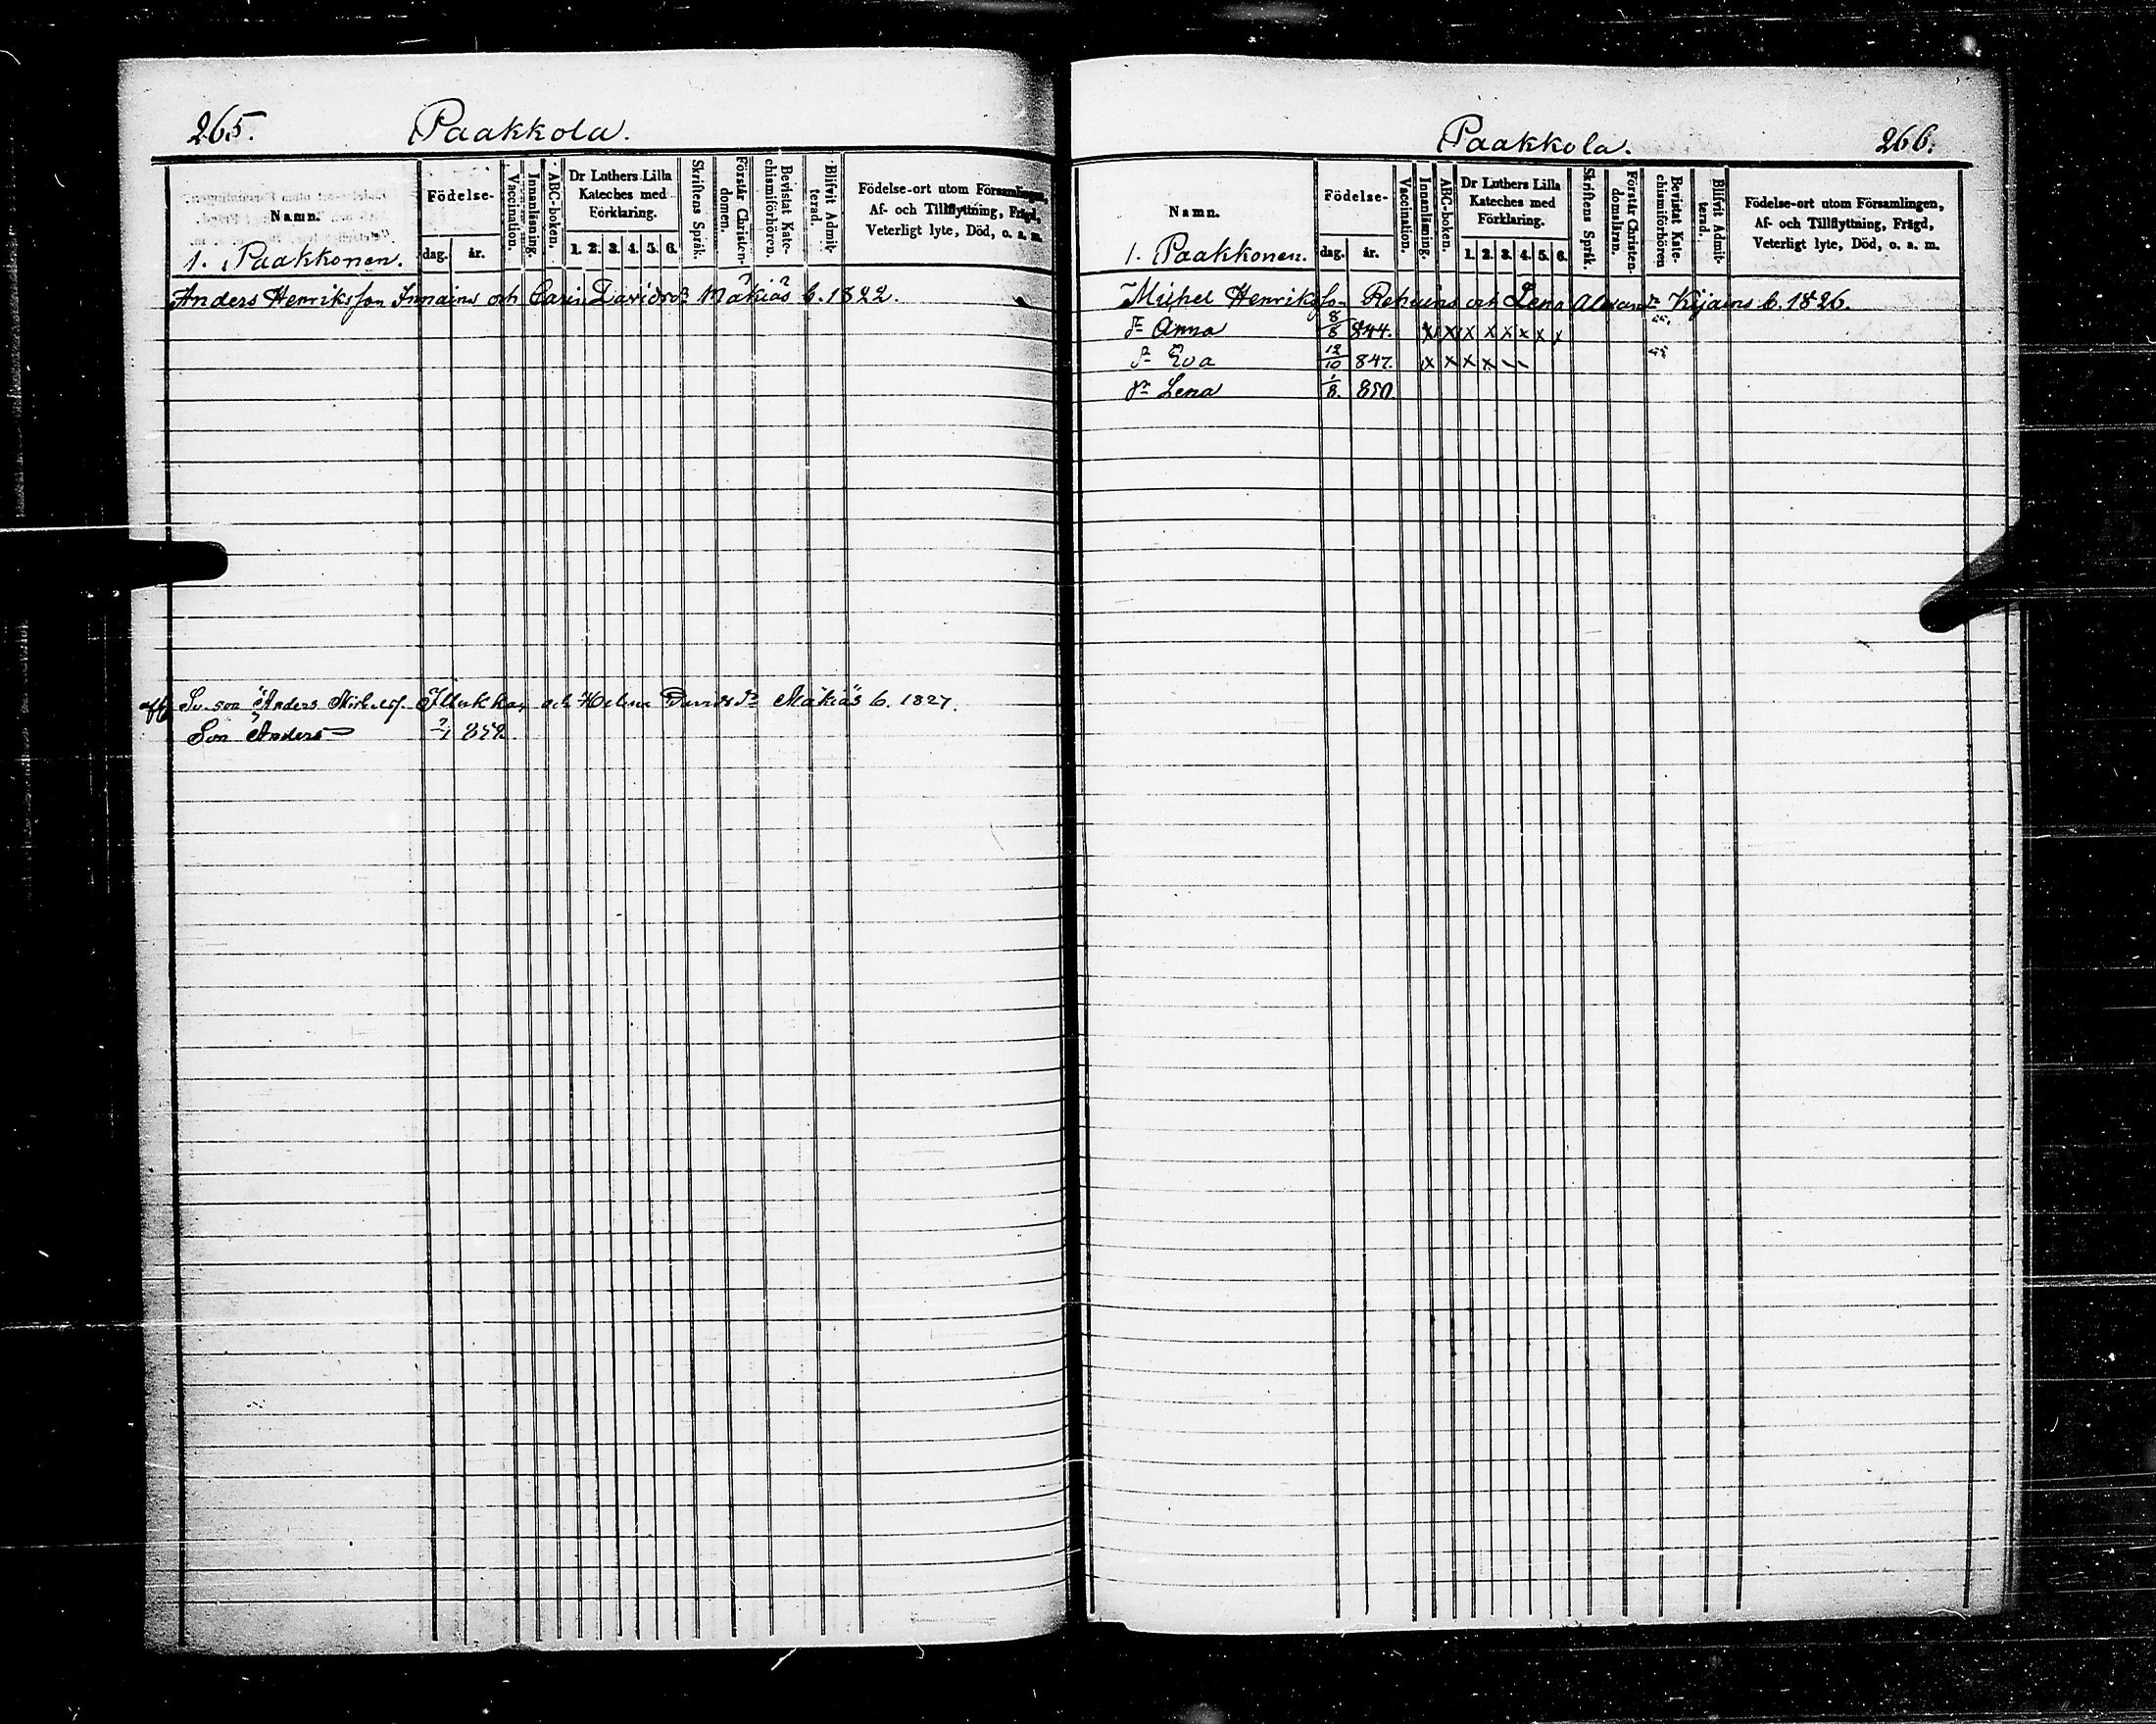 265. Paakkola.
Namn.
Födelse-
dag. år.
Vaccination.
Innanläsning.
ABC-boken.
Dr Luthers Lilla
Kateches med
Förklaring.
1. 2. 3. 4. 5. 6.
Skriftens Språk.
Förstår Christen-
domen.
Bevistat Kate-
chismiförhören.
Blifvit Admit-
terad.
Födelse-ort utom Församlingen,
Af- och Tillflyttning, Frägd,
Veterligt lyte, Död, o. a. m.
1. Paakkonen.
Anders Henriksson och Carin Davidsdr Mäkiäs b. 1822.
Sv. son Anders och Helena Davidsdr Mäkiäs b. 1827.
Son Anders 2/1
Paakkola. 266.
Namn.
Födelse-
dag. år.
Vaccination.
Innanläsning.
ABC-boken.
Dr Luthers Lilla
Kateches med
Förklaring.
1. 2. 3. 4. 5. 6.
Skriftens Språk.
Förstår Christen-
domsläran.
Bevistat Kate-
chismiförhören
Blifvit Admit-
terad.
Födelse-ort utom Församlingen,
Af- och Tillflyttning, Frägd,
Veterligt lyte, Död, o. a. m.
1. Paakkonen.
Michel Henriksson och Lena b. 1826.
dr Anna 8/8 844. x x x x x x x x
dr Eva 12/10 847. x x x x
dr Lena 1/8. 850